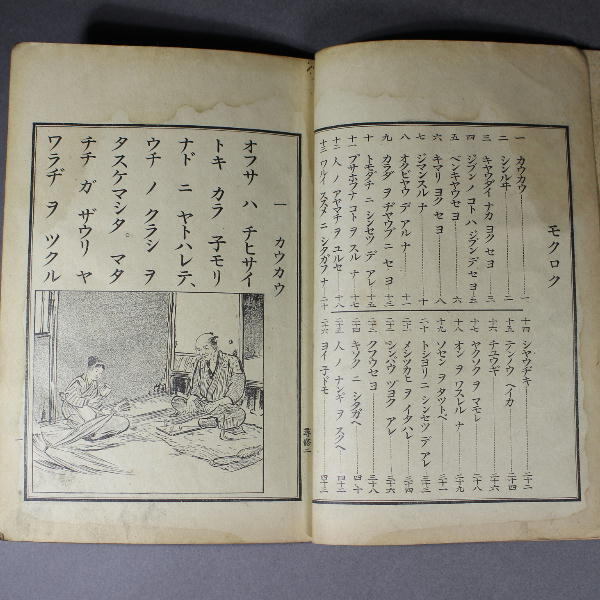 モクロク
一 カウカウ 一
二 シンルヰ 二
三 キヤウダイ ナカ ヨク セヨ 三
四 ジブン ノ コト ハ ジブン デ セヨ
五 ベンキヤウ セヨ 六
六 キマリ ヨク セヨ 八
七 ジマン スル ナ 十
八 オクビヤウ デ アル ナ 十一
九 カラダ ヲ ヂヤウブ ニ セ ヨ
十 トモダチ ニ シンセツ デ アレ 十五
十一 ブサホフナ コト ヲ スル ナ
十二 人 ノ アヤマチ ヲ ユルセ 十八
十三 ワルイ ススメ ニ シタガフ ナ 二十
十四 シヤウヂキ 二十二
十五 テンノウ ヘイカ 二十四
十六 チユウギ 二十六
十七 ヤクソク ヲ マモレ 二十八
十八 オン ヲ ワスレル ナ 二十九
十九 ソセン ヲ タツトベ 三十一
二十 トシヨリ ニ シンセツ デ アレ 三十三
二十一 メシツカヒ ヲ イタハレ 三十四
二十二 シンバウ ヅヨク アレ 三十六
二十三 クフウ セヨ 三十八
二十四 キソク ニ シタガヘ 四十
二十五 人 ノ ナンギ ヲ スクヘ
二十六 ヨイ 子ドモ 四十三
一 カウカウ
オフサ ハ チヒサイ
トキ カラ 子モリ
ナド ニ ヤトハレテ、
ウチ ノ クラシ ヲ
タスケマシタ。マタ
チチ ガ ザウリ ヤ
ワラヂ ヲ ツクル
尋修二